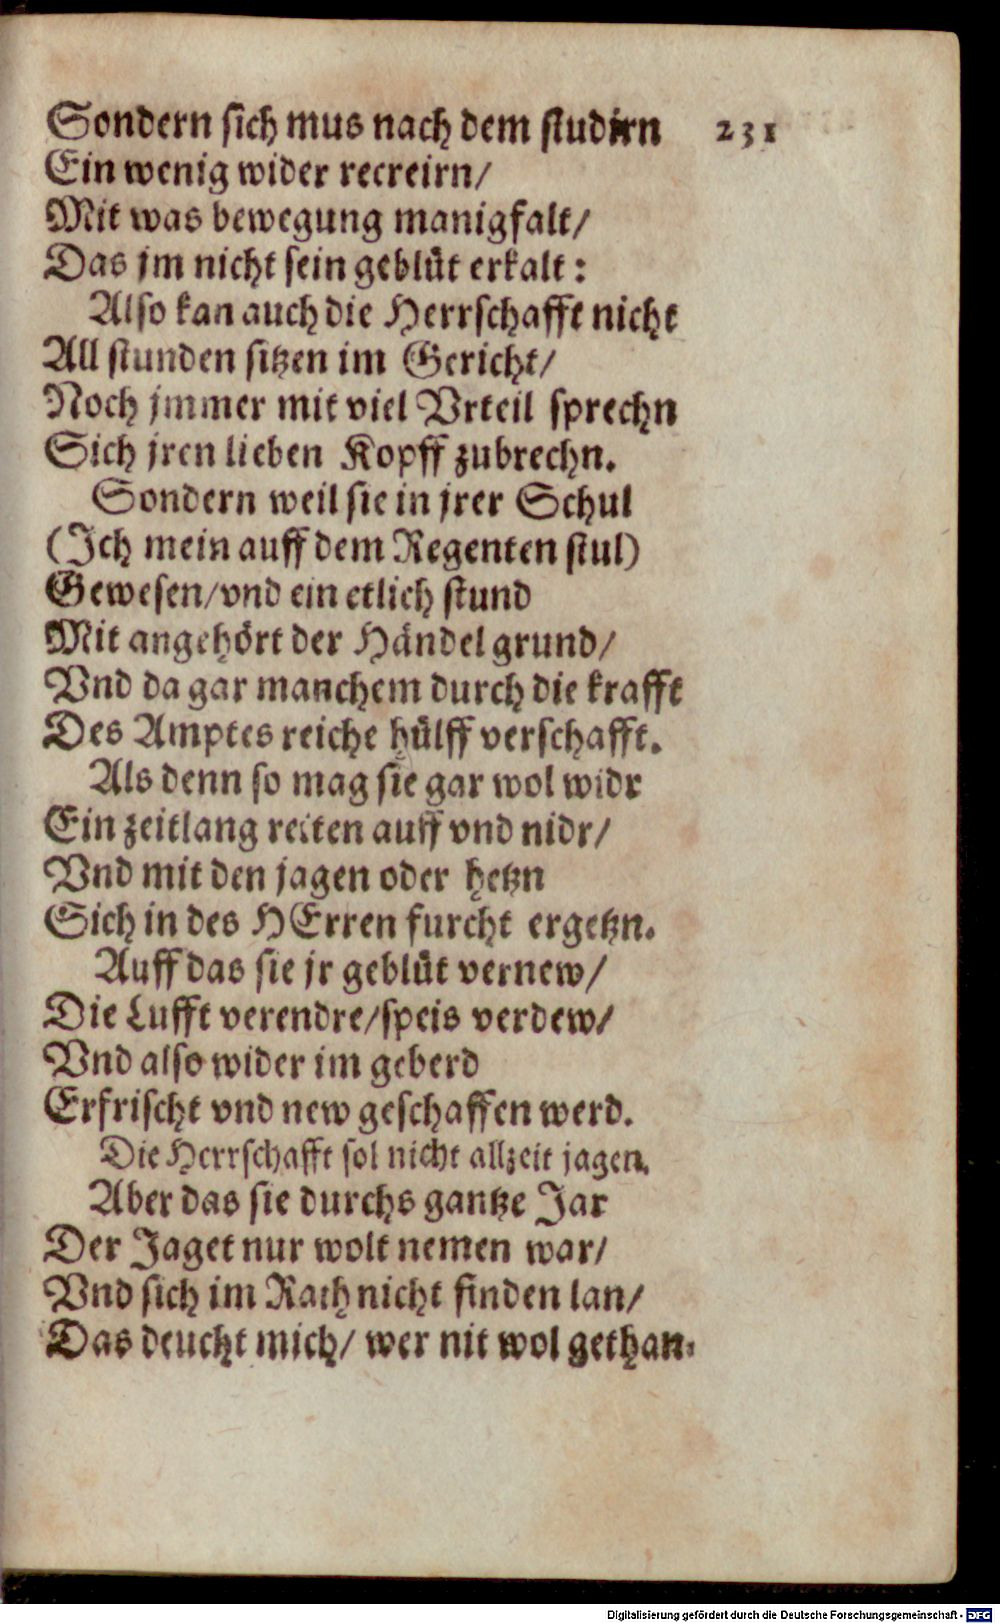 Sondern sich mus nach dem studirn 231
Ein wenig wider recreirn/
Mit was bewegung manigfalt/
Das jm nicht sein geblüt erkalt:
Also kan auch die Herrschafft nicht
All stunden sitzen im Gericht/
Noch jmmer mit viel Vrteil sprechn
Sich jren lieben Kopff zubrechn.
Sondern weil sie in jrer Schul
(Ich mein auff dem Regenten stul)
Gewesen/vnd ein etlich stund
Mit angehört der Händel grund/
Vnd da gar manchem durch die krafft
Des Amptes reiche hülff verschafft.
Als denn so mag sie gar wol widr
Ein zeitlang reiten auff vnd nidr/
Vnd mit den jagen oder hetzn
Sich in des HErren furcht ergetzn.
Auff das sie jr geblüt vernew/
Die Lufft verendre/speis verdew/
Vnd also wider im geberd
Erfrischt vnd new geschaffen werd.
Die Herrschafft sol nicht allzeit jagen.
Aber das sie durchs gantze Jar
Der Jaget nur wolt nemen war/
Vnd sich im Rath nicht finden lan/
Das deucht mich/ wer nit wol gethan.
Digitalisierung gefördert durch die Deutsche Forschungsgemeinschaft - DFG